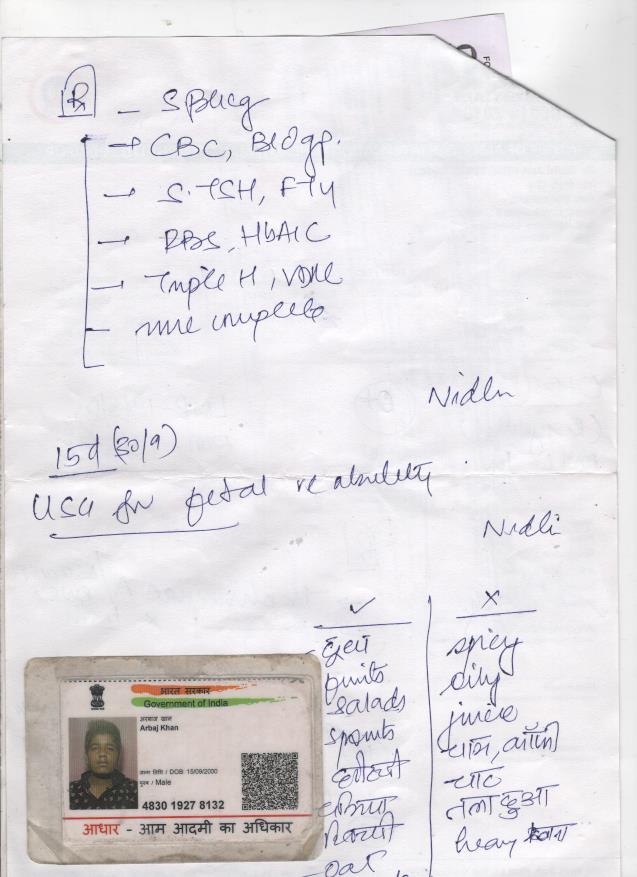 Rx
- S BHCG
→ CBC, Bldgp.
→ S. TSH, FT4
→ RBS, HbA1C
→ Triple H, VDRL
Nidhi
15d (30/9)
USG for fetal viability
Nidhi
✓ X
spicy
fruits oily
salads juice
sprouts चाय, कॉफी
चाट
तला हुआ
heavy खाना
भारत सरकार
Government of India
अरबाज खान
Arbaj Khan
जन्म तिथि / DOB: 15/09/2000
पुरुष / Male
4830 1927 8132
आधार - आम आदमी का अधिकार